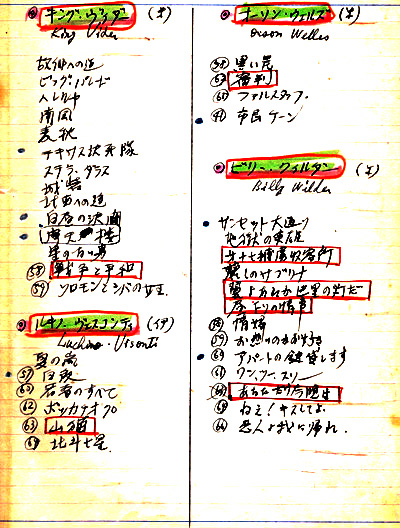 キング・ヴィダー (米)
King Vidor
故郷への道
ビッグ・パレード
南風
麦秋
テキサス決死隊
ステラ・ダラス
城砦
北西への道
白昼の決闘
摩天楼
星のない男
58 戦争と平和
59 ソロモンとシバの女王
ルキノ・ヴィスコンティ (イタ)
Luchino・Visconti
夏の嵐
白夜
60 若者のすべて
62 ボッカチオ70
63 山猫
北斗七星
オーソン・ウェルズ (米)
Orson Welles
58 黒い罠
審判
ファルスタッフ
市民ケーン
ビリー・ワイルダー (米)
Billy Wilder
サンセット大通り
地獄の英雄
第十七捕虜収容所
麗しのサブリナ
翼よあれが巴里の灯だ
昼下りの情事
情婦
59 お熱いのがお好き
アパートの鍵貸します
61 ワン、ツー、スリー
あなただけ今晩は
ねえ!キスしてよ
恋人よ我に帰れ